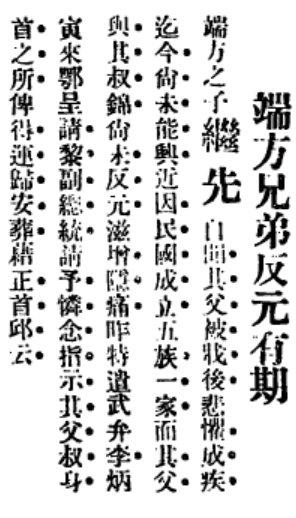 端方兄弟反元有期
端方之子繼先自聞其父被戕後悲懼成疾
迄今尙未能興近因民國成立五族一家而其父
與其叔錦尙未反元滋增隱痛昨特遣武弁李炳
寅來鄂呈請黎副總統請予憐念指示其父叔身
首之所俾得運歸安葬藉正首邱云